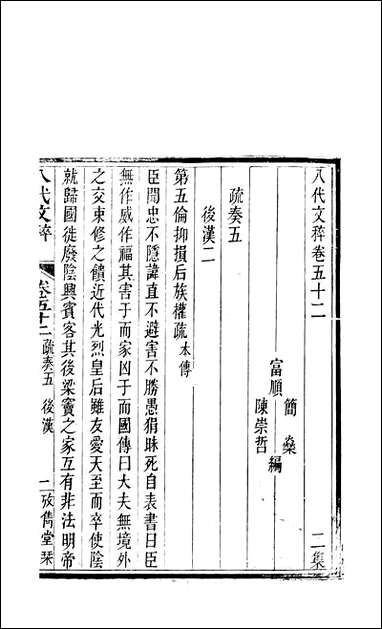 八代文粹卷五十二　二集
簡燊
富順　編
陳崇哲
疏奏五
後漢二
第五倫抑損后族權疏 本傳
臣聞忠不隱諱直不避害不勝愚狷昧死自表書曰臣
無作威作福其害于而家凶于而國傳曰大夫無境外
之交束修之饋近代光烈皇后雖友愛天至而卒使陰
就歸國徙廢陰興賓客其後梁竇之家互有非法明帝
八代文粹　卷五十二　疏奏五　後漢　二　攷雋堂栞